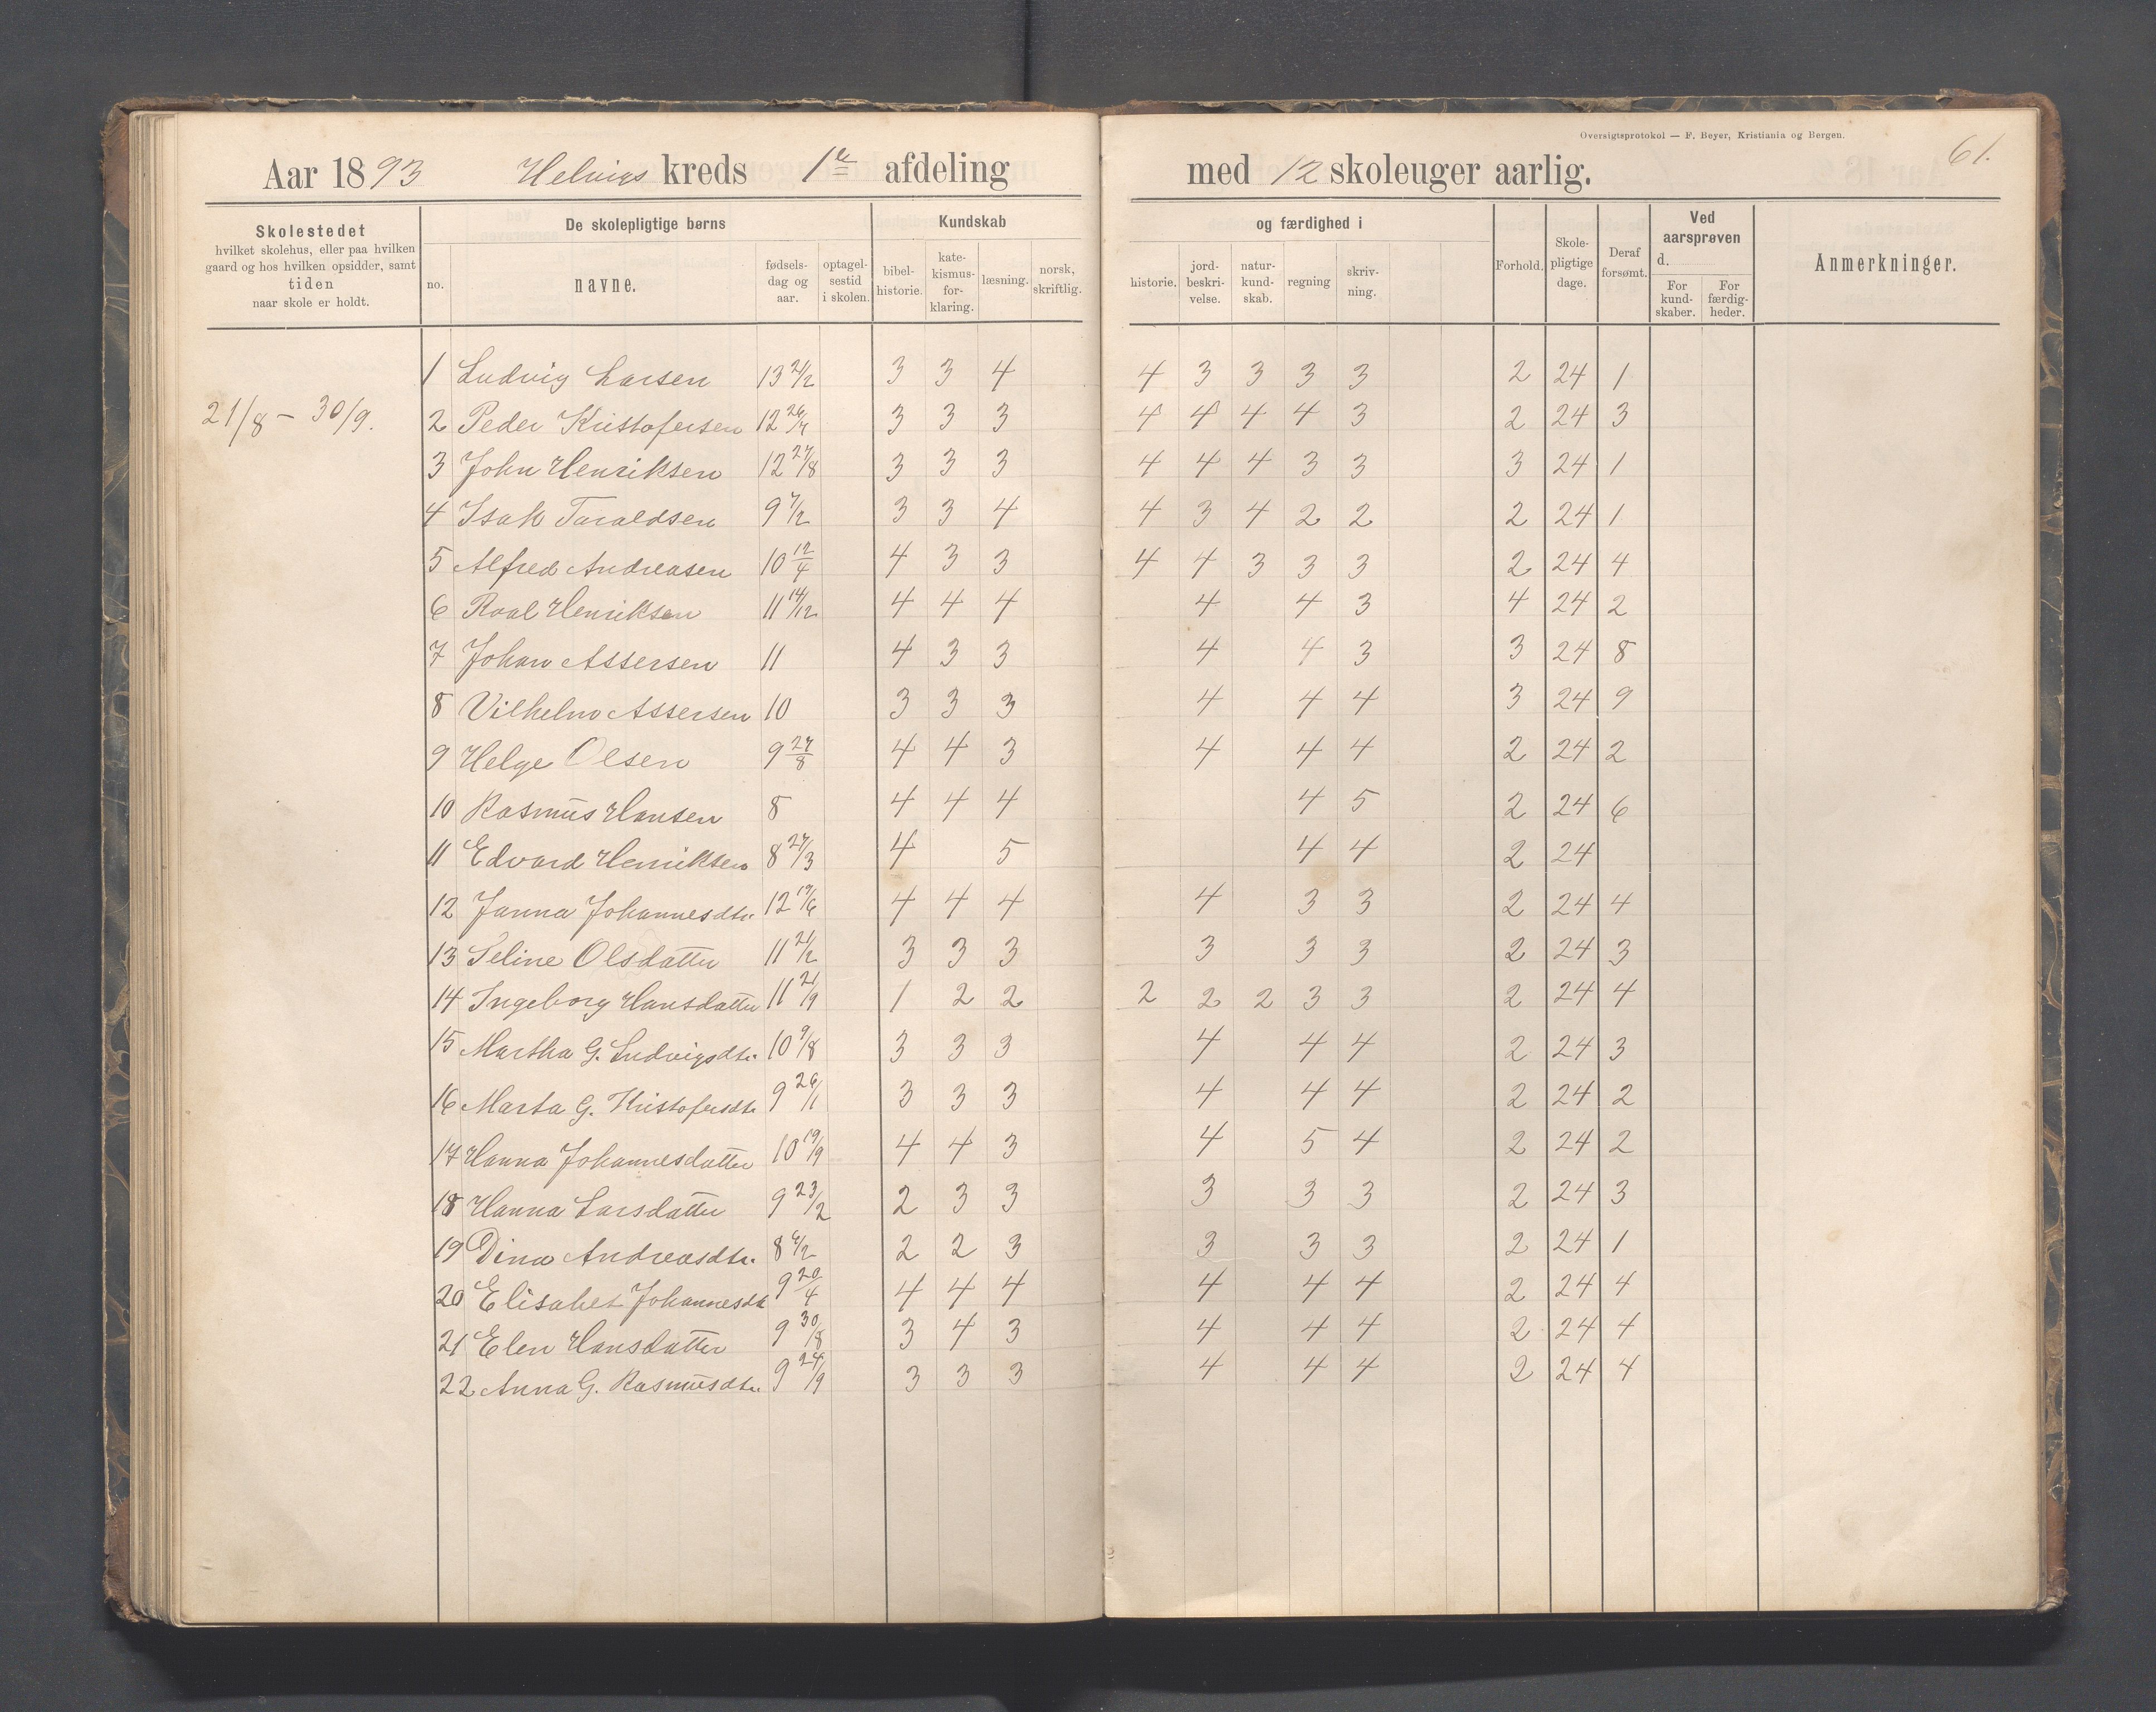 Oversigtsprotokol — F. Beyer, Kristiania og Bergen.
61.
Aar 1893 Helvigs kreds 1ste afdeling med 12 skoleuger aarlig.
Skolestedet
hvilket skolehus, eller paa hvilken
gaard og hos hvilken opsidder, samt
tiden
naar skole er holdt.
De skolepligtige børns
no.
navne.
fødsels-
dag og
aar.
optagel-
sestid
i skolen.
Kundskab
bibel-
historie.
kate-
kismus-
for-
klaring.
læsning.
norsk,
skriftlig.
og færdighed i
historie.
jord-
beskri-
velse.
natur-
kund-
skab.
regning
skriv-
ning.
Forhold.
Skole-
pligtige
dage.
Deraf
forsømt.
Ved
aarsprøven
d.
For
kund-
skaber.
For
færdig-
heder.
Anmerkninger.
21/8 - 30/9.
1 Ludvig Larsen 13 2/2 3 3 4 4 3 3 3 3 2 24 1
2 Peder Kristofersen 12 26/4 3 3 3 4 4 4 4 3 2 24 3
3 John Henriksen 12 27/8 3 3 3 4 4 4 3 3 3 24 1
4 Isak Taraldsen 9 7/2 3 3 4 4 3 4 2 2 2 24 1
5 Alfred Andreasen 10 12/4 4 3 3 4 4 3 3 3 2 24 4
6 Roal Henriksen 11 14/12 4 4 4 4 4 3 4 24 2
7 Johan Assersen 11 4 3 3 4 4 3 3 24 8
8 Vilhelm Assersen 10 3 3 3 4 4 4 3 24 9
9 Helge Olsen 9 27/8 4 4 3 4 4 4 2 24 2
10 Rasmus Hansen 8 4 4 4 4 5 2 24 6
11 Edvard Henriksen 8 27/3 4 5 4 4 2 24
12 Janna Johannesdtr. 12 19/6 4 4 4 4 3 3 2 24 4
13 Seline Olsdatter 11 21/2 3 3 3 3 3 3 2 24 3
14 Ingeborg Hansdatter 11 21/9 1 2 2 2 2 2 3 3 2 24 4
15 Martha G. Ludvigsdtr. 10 9/8 3 3 3 4 4 4 2 24 3
16 Marta G. Kristofersdtr. 9 26/1 3 3 3 4 4 4 2 24 2
17 Hanna Johannesdatter 10 19/9 4 4 3 4 5 4 2 24 2
18 Hanna Larsdatter 9 23/2 2 3 3 3 3 3 2 24 3
19 Dina Andreasdtr. 8 6/2 2 2 3 3 3 3 2 24 1
20 Elisabet Johannesdtr 9 20/4 4 4 4 4 4 4 2 24 4
21 Elen Hansdatter 9 30/8 3 4 3 4 4 4 2 24 4
22 Anna G. Rasmusdtr. 9 24/9 3 3 3 4 4 4 2 24 4